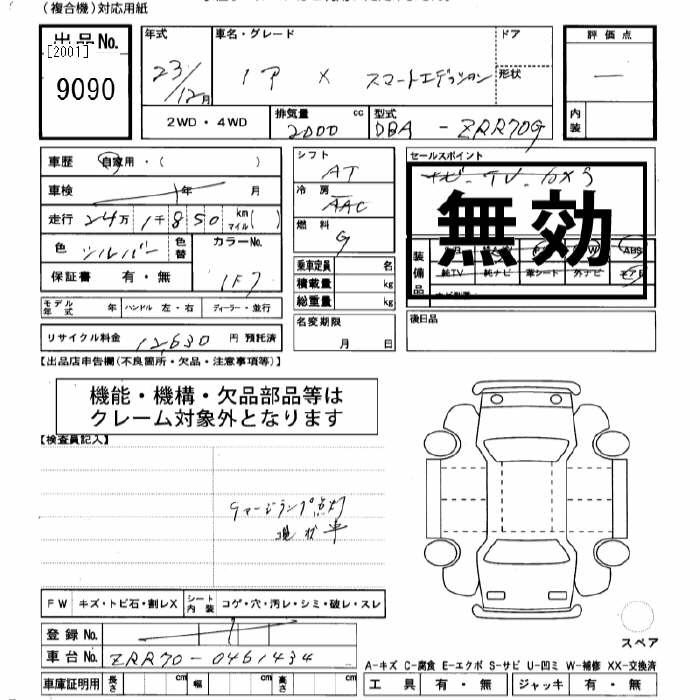 (複合機)対応用紙
出品No.
[2001]
9090
年式
23/12月
車名・グレード
ノア X スマートエディション
ドア
形状
2WD・4WD
排気量 cc
2000
型式
DBA - ZRR70G
評価点
—
内装
車歴 自家用・( )
車検 年 月
走行 24万1千850 km マイル( )
色 シルバー 色替
カラーNo.
1F7
保証書 有・無
モデル年式 年 ハンドル 左・右 ディーラー・並行
リサイクル料金 12,630 円 預託済
シフト AT
冷房 AAC
燃料 G
乗車定員 名
積載量 kg
総重量 kg
名変期限
月 日
セールスポイント
ナビ・TV
無効
装備品
ABS
純TV 純ナビ 革シート 外ナビ エアB
後日品
【出品店申告欄(不良箇所・欠品・注意事項等)】
機能・機構・欠品部品等は
クレーム対象外となります
【検査員記入】
チャージランプ点灯
現状車
FW キズ・トビ石・割レX シート内装 コゲ・穴・汚レ・シミ・破レ・スレ
登録No.
車台No. ZRR70-0461434
車庫証明用 長さ cm 幅 cm 高さ cm
スペア
A-キズ C-腐食 E-エクボ S-サビ U-凹ミ W-補修 XX-交換済
工具 有・無 ジャッキ 有・無